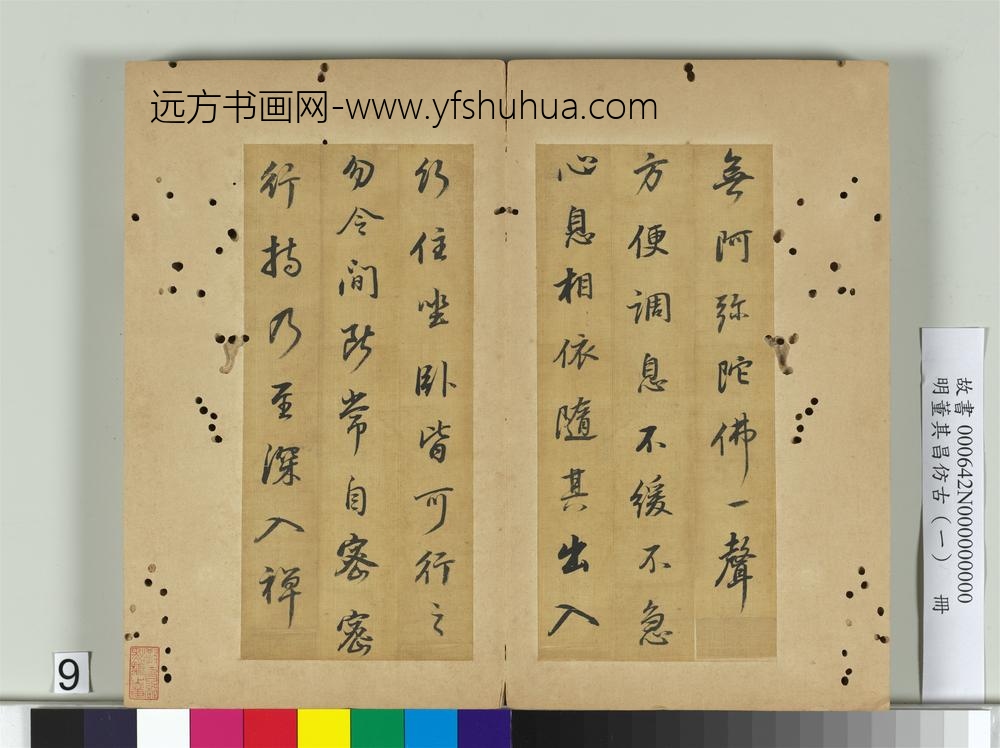 远方书画网-www.yfshuhua.com
無阿弥陀佛一聲
方便调息不缓不急
心息相依隨其出入
行住坐卧皆可行之
勿令间断常自密密
行持乃至深入禅
故書 000642N000000000
明董其昌仿古（一） 冊
9